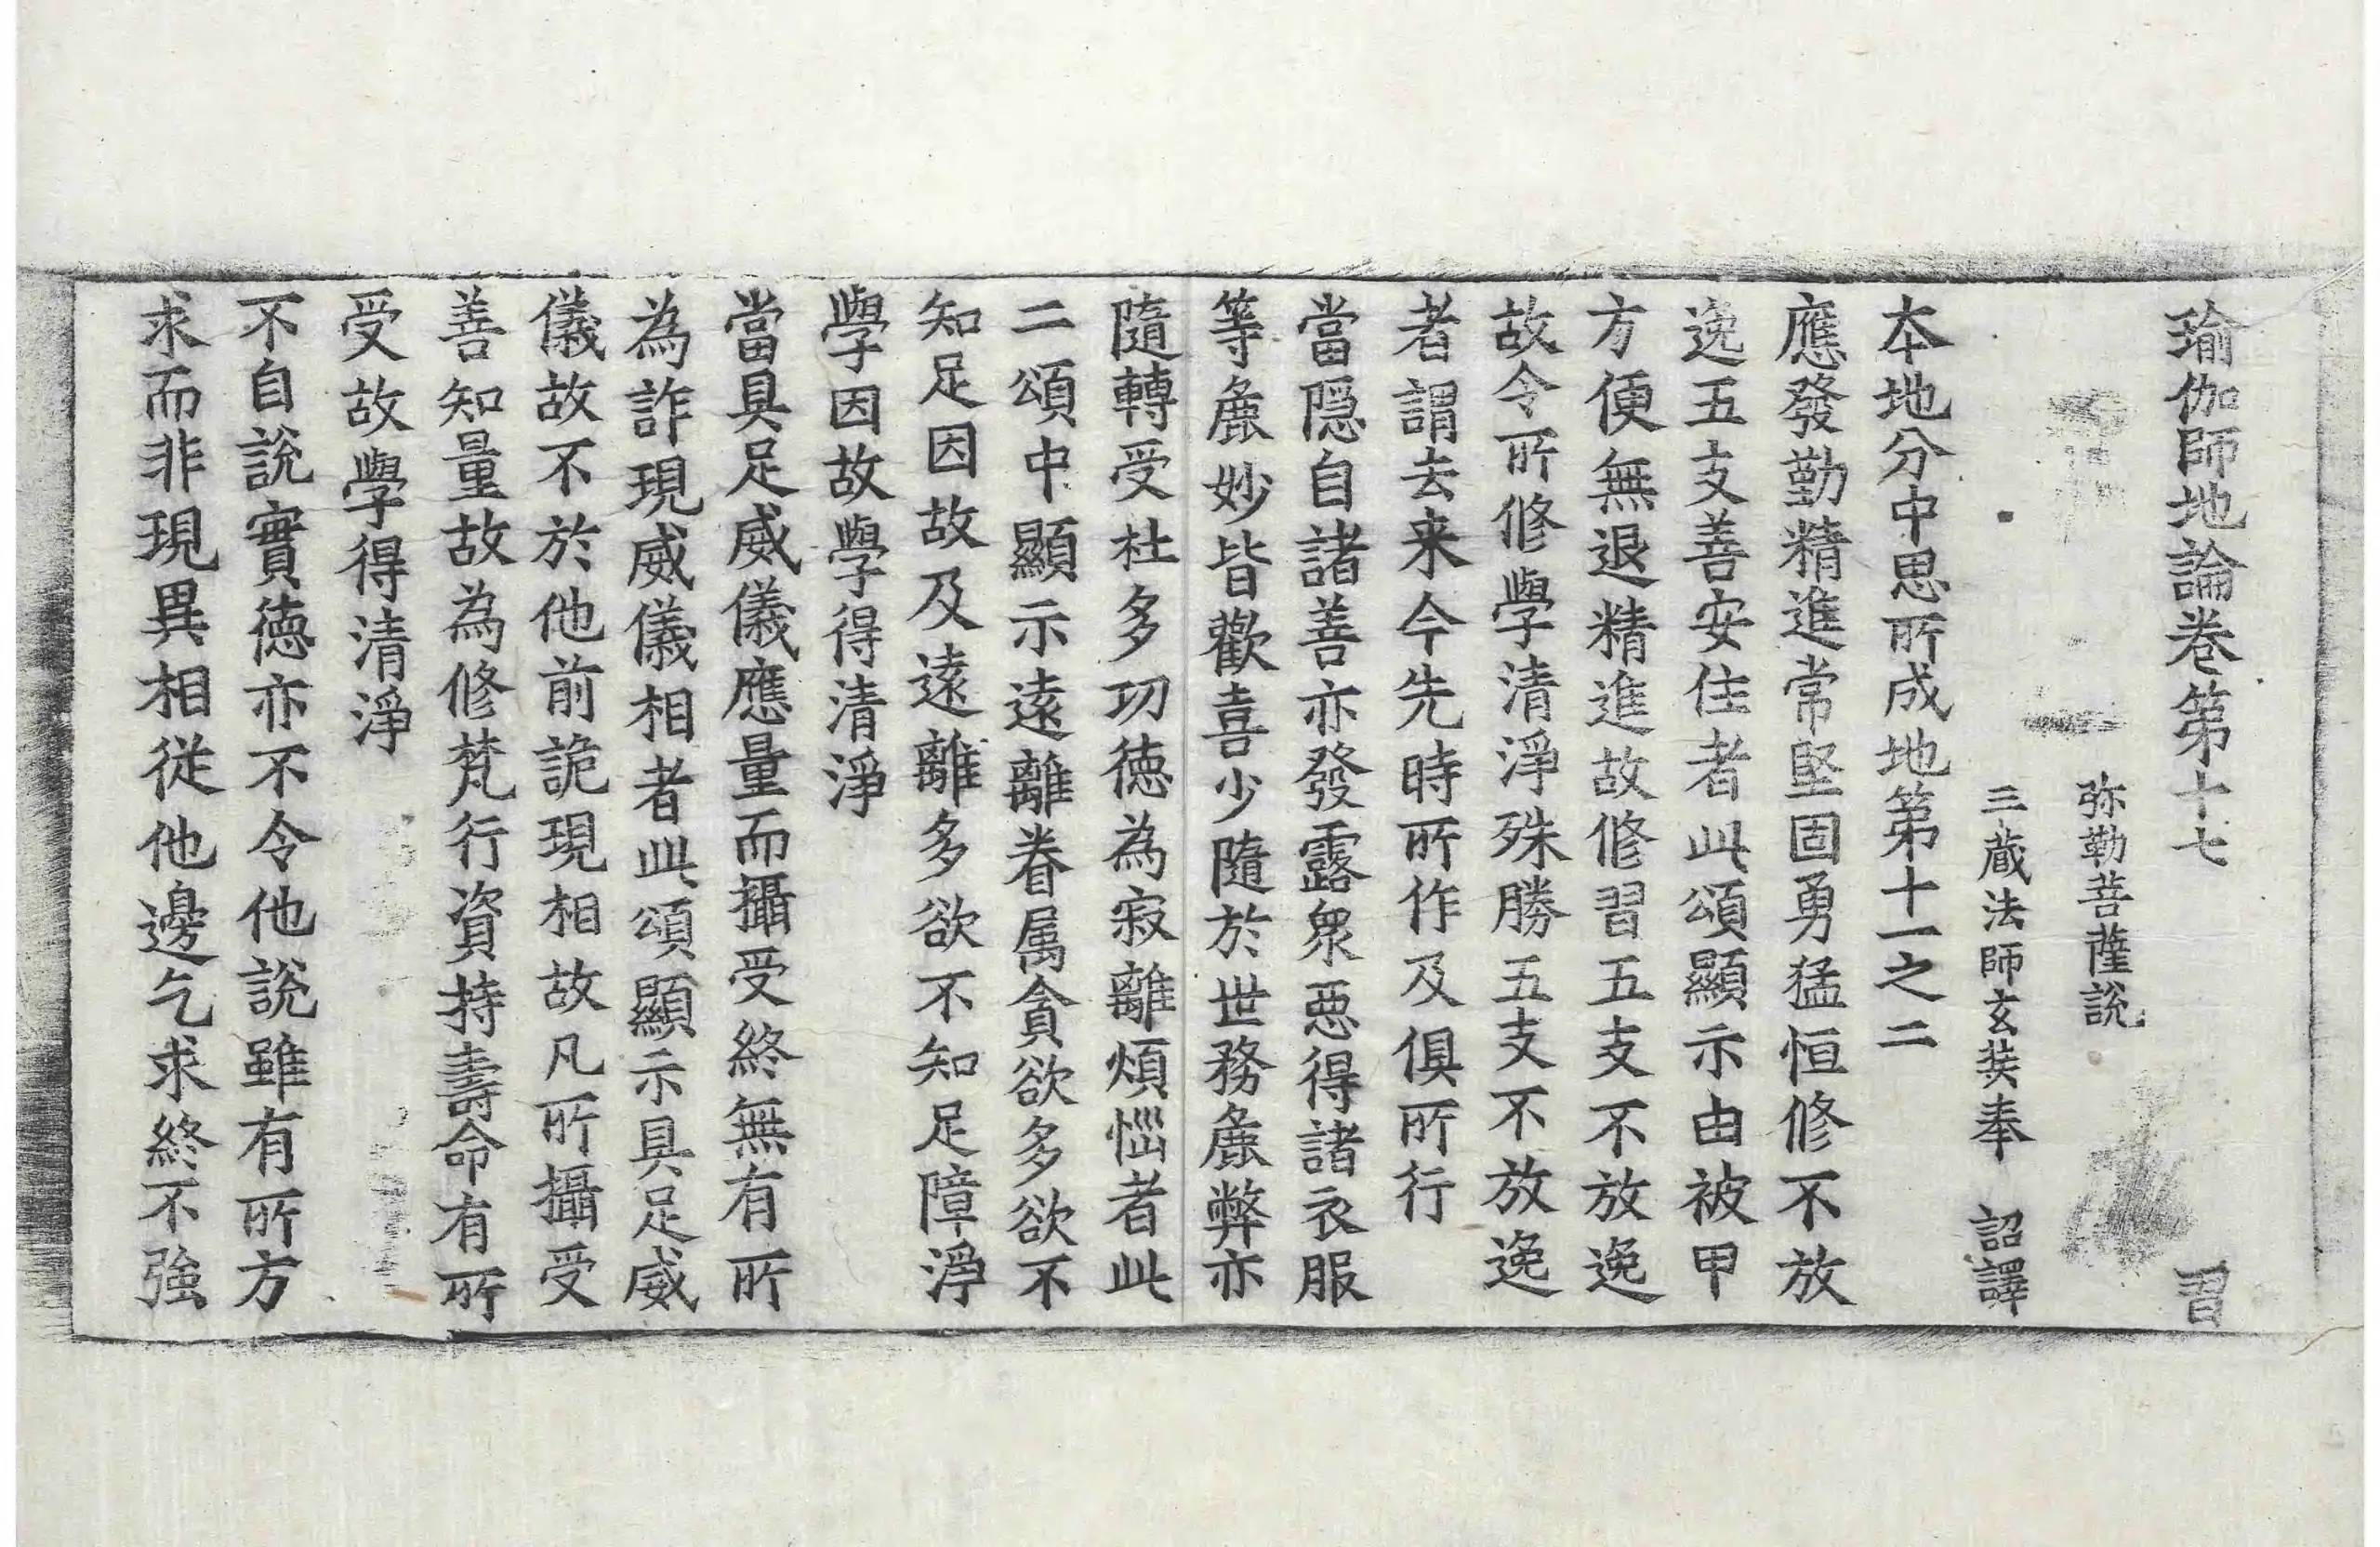 瑜伽師地論卷第十七　習
弥勒菩薩說
三蔵法師玄奘奉　詔譯
本地分中思所成地第十一之二
應發勤精進常堅固勇猛恒修不放
逸五支善安住者此頌顯示由被甲
方便無退精進故修習五支不放逸
故令所修學清淨殊勝五支不放逸
者謂去来今先時所作及俱所行
當隠自諸善亦發露衆惡得諸衣服
等麁妙皆歡喜少隨於世務麁弊亦
隨轉受杜多功徳為寂離煩惱者此
二頌中顯示遠離眷属貪欲多欲不
知足因故及遠離多欲不知足障淨
學因故學得清淨
當具足威儀應量而攝受終無有所
為詐現威儀相者此頌顯示具足威
儀故不於他前詭現相故凡所攝受
善知量故為修梵行資持壽命有所
受故學得清淨
不自說實徳亦不令他說雖有所方
求而非現異相從他邊乞求終不強